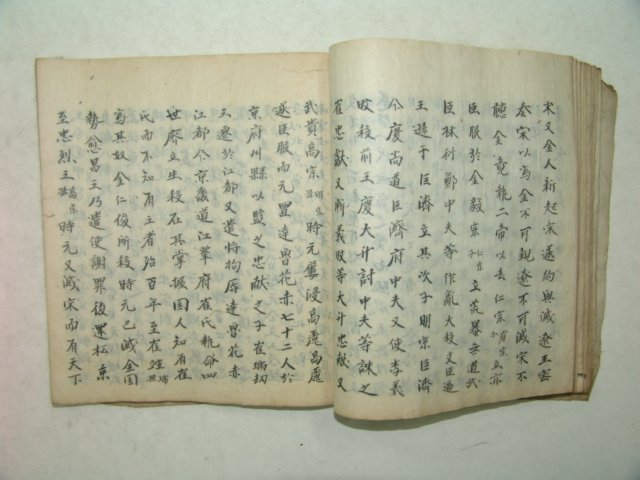 宋又金人新起宋遂約與滅遼王密
奏宋以為金不可親遼不可滅宋不
聽金竟執二帝以去仁宗子睿宗立亦
臣服於金毅宗仁宗子立荒暴無道武
臣林衍鄭中夫等作亂大殺文臣逼
王遜于巨濟立其次子明宗巨濟
今慶尚道巨濟府中夫又使李義
旼殺前王慶大升討中夫等誅之
崔忠獻又所義旼等大升忠獻又
武貴高宗明宗孫時元屢侵高麗高麗
遂臣服而元置達魯花赤七十二人於
京府州縣以監之忠獻之子崔瑀刼
王遷於江都又遣將拘辱達魯花赤
江都今京畿道江華府崔氏執命四
世廢立生殺在其掌握國人知有崔
氏而不知有王者殆百年至崔竩瑀
為其奴金仁俊所殺時元已滅金国
勢愈昌王乃遣使謝罪後還松京
至忠烈王高宗孫時元又滅宋而有天下